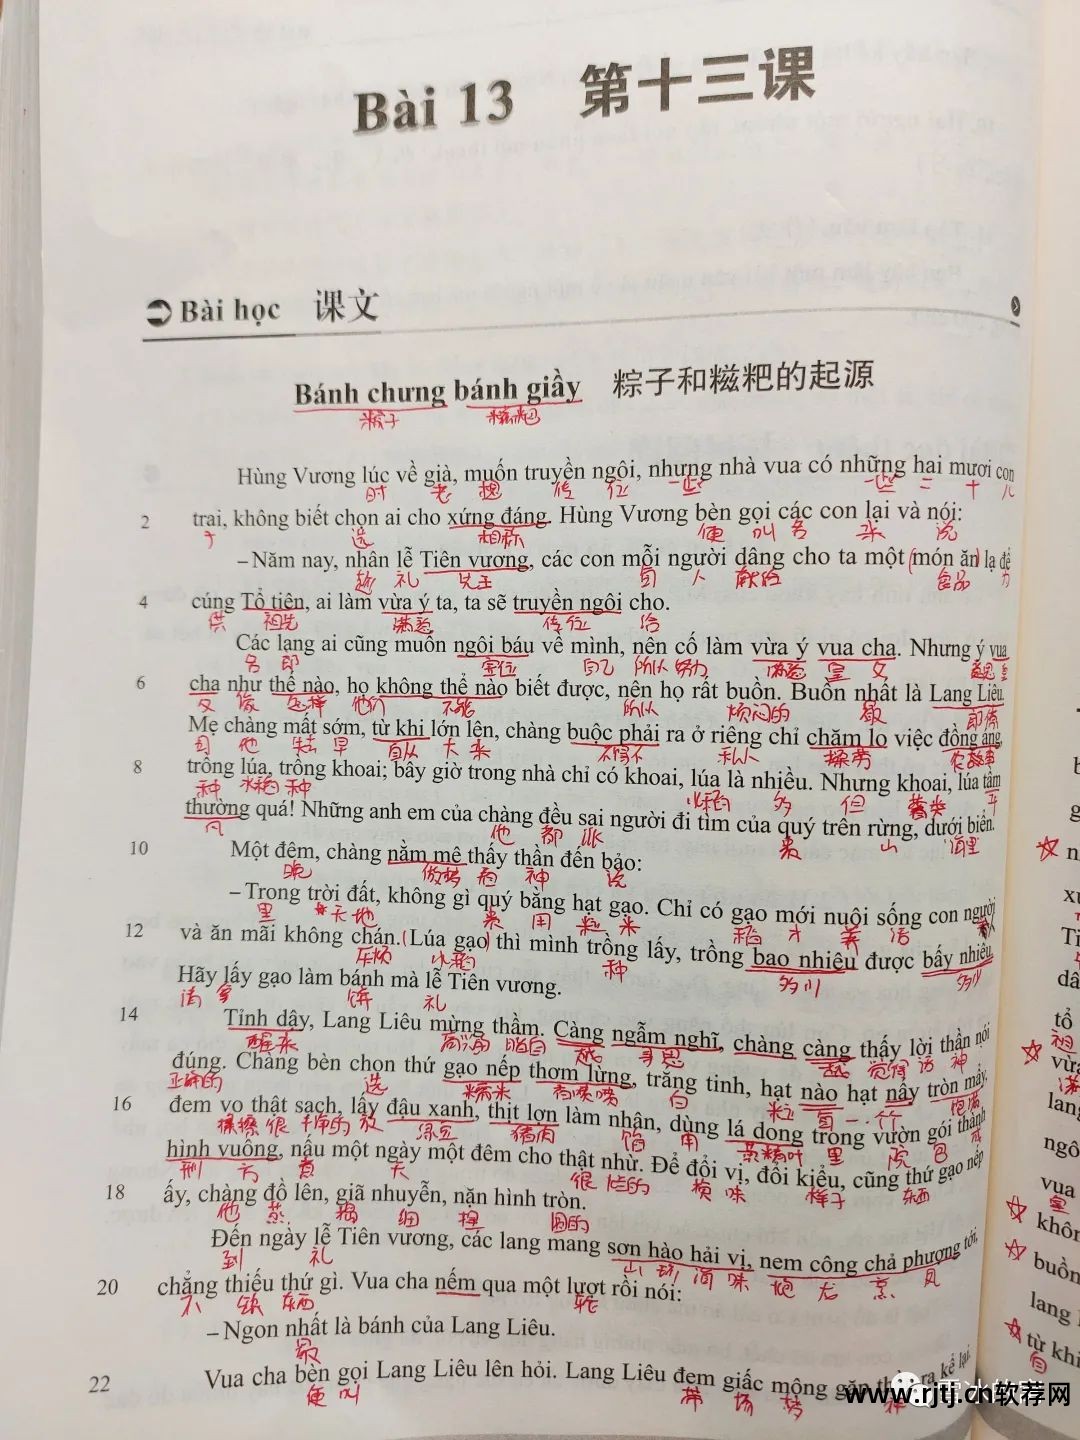 Bài 13 第十三课
Bài học 课文
Bánh chưng bánh giầy 粽子和糍粑的起源
粽子 糍粑
Hùng Vương lúc về già, muốn truyền ngôi, nhưng nhà vua có những hai mươi con
时 老 想 传 位 一些 二 十 儿
2 trai, không biết chọn ai cho xứng đáng. Hùng Vương bèn gọi các con lại và nói:
子 选 相称 便 叫 各 来 说
– Năm nay, nhân lễ Tiên vương, các con mỗi người dâng cho ta một (món ăn) lạ để
趁 礼 先王 每 人 献给 食品 为
4 cúng Tổ tiên, ai làm vừa ý ta, ta sẽ truyền ngôi cho.
供 祖先 满意 传位 给
Các lang ai cũng muốn ngôi báu về mình, nên cố làm vừa ý vua cha. Nhưng ý vua
各 郎 宝位 自己 所以 努力 满意 皇 父 意思 皇
6 cha như thế nào, họ không thể nào biết được, nên họ rất buồn. Buồn nhất là Lang Liêu.
父 像 怎样 他们 不能 所以 烦闷的 最 郎僚
Mẹ chàng mất sớm, từ khi lớn lên, chàng buộc phải ra ở riêng chỉ chăm lo việc đồng áng,
母 他 失去 早 自从 大 来 不得不 私人 操劳 农事
8 trồng lúa, trồng khoai; bây giờ trong nhà chỉ có khoai, lúa là nhiều. Nhưng khoai, lúa tầm
种 水稻 种 水稻 多 但 薯类 平
thường quá! Những anh em của chàng đều sai người đi tìm của quý trên rừng, dưới biển.
凡 他 都 派 贵 山 海里
10 Một đêm, chàng nằm mê thấy thần đến bảo:
晚 做梦 看 神 说
– Trong trời đất, không gì quý bằng hạt gạo. Chỉ có gạo mới nuôi sống con người
里 天地 贵 用 粒 米 稻 才 养 活 人
12 và ăn mãi không chán. (Lúa gạo) thì mình trồng lấy, trồng bao nhiêu được bấy nhiêu.
厌烦 水稻 种 多少 多少
Hãy lấy gạo làm bánh mà lễ Tiên vương.
请 拿 饼 礼
14 Tỉnh dậy, Lang Liêu mừng thầm. Càng ngẫm nghĩ, chàng càng thấy lời thần nói
醒来 高兴 暗自 越 寻思 越 觉得 话 神
đúng. Chàng bèn chọn thứ gạo nếp thơm lừng, trắng tinh, hạt nào hạt nấy tròn mẩy,
正确的 选 糯米 香喷喷 白 粒 饱满
16 đem vo thật sạch, lấy đậu xanh, thịt lợn làm nhân, dùng lá dong trong vườn gói thành
很 干净的 绿豆 猪肉 馅 用 里 院 包 成
hình vuông, nấu một ngày một đêm cho thật nhừ. Để đổi vị, đổi kiểu, cũng thứ gạo nếp
形 方 煮 天 很 烂的 换 味 样子 东西
18 ấy, chàng đồ lên, giã nhuyễn, nặn hình tròn.
他 蒸 捣 细 捏 圆的
Đến ngày lễ Tiên vương, các lang mang sơn hào hải vị, nem công chả phượng tới,
到 礼 山 海 味
20 chẳng thiếu thứ gì. Vua cha nếm qua một lượt rồi nói:
不 缺 东西
– Ngon nhất là bánh của Lang Liêu.
最
22 Vua cha bèn gọi Lang Liêu lên hỏi. Lang Liêu đem giấc mộng gặp thần ra kể lại.
便 叫 带 场 梦 神
www.rjtj.cn软荐网